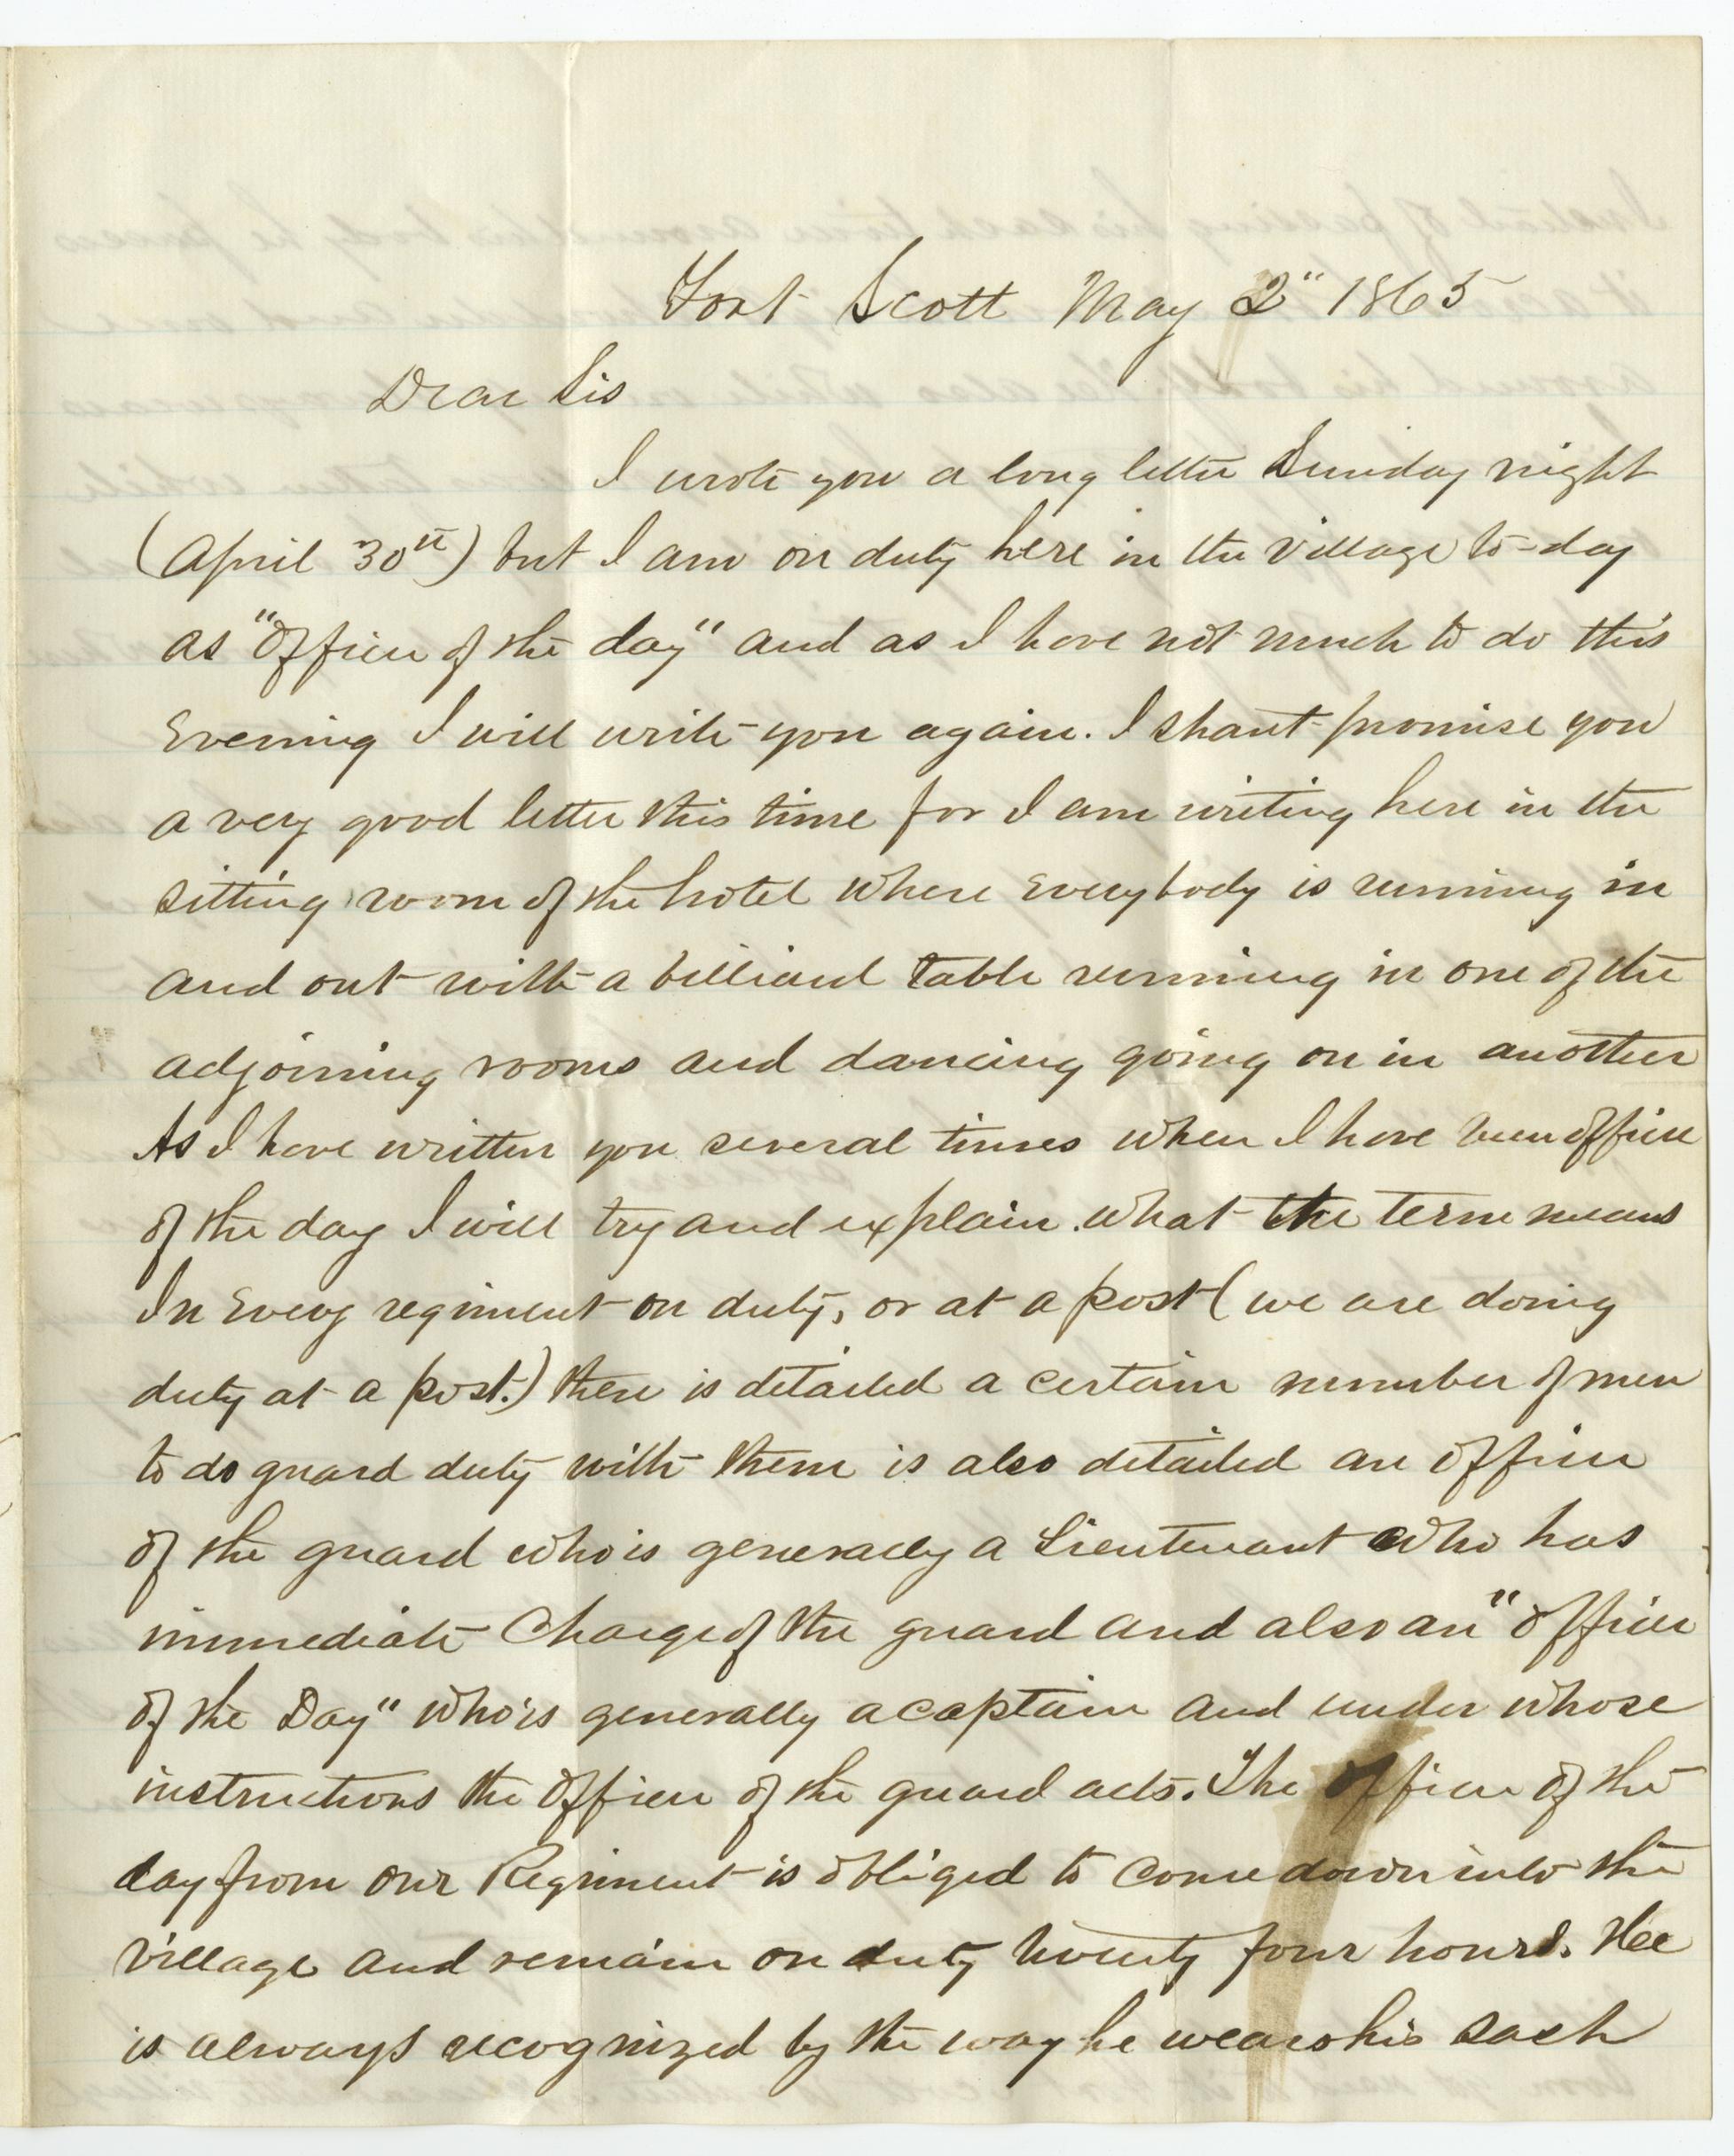 Fort Scott May 2" 1865
Dear Sis
I wrote you a long letter Sunday night
(April 30th) but I am on duty here in the village to-day
as "Officer of the day" and as I have not much to do this
Evening I will write you again. I shant promise you
a very good letter this time for I am writing here in the
sitting room of the hotel where Everybody is running in
and out with a billiard table running in one of the
adjoining rooms and dancing going on in another
As I have written you several times when I have been officer
of the day I will try and explain what the term means
In Every regiment on duty, or at a post (we are doing
duty at a post.) there is detailed a certain number of men
to do guard duty with them is also detailed an officer
of the guard who is generally a Lieutenant who has
immediate charge of the guard and also an "officer
of the Day" who is generally a captain and under whose
instructions the officer of the guard acts. The officer of the
day from our Regiment is obliged to come down into the
village and remain on duty twenty four hours. Hee
is always recognized by the way he wears his sash